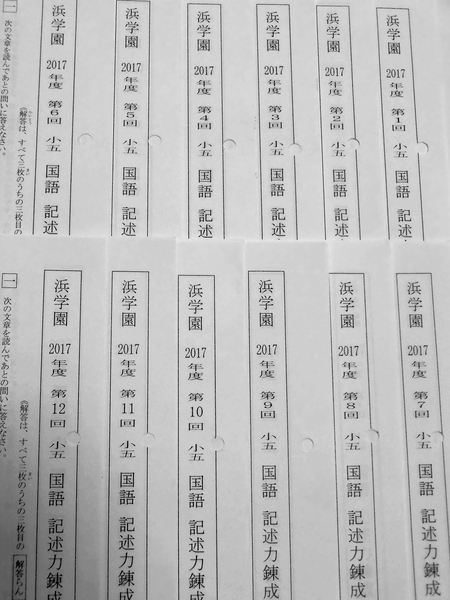 浜学園 2017年度 第1回 小五 国語 記述
浜学園 2017年度 第2回 小五 国語 記述
浜学園 2017年度 第3回 小五 国語 記述
浜学園 2017年度 第4回 小五 国語 記述
浜学園 2017年度 第5回 小五 国語 記述
浜学園 2017年度 第6回 小五 国語 記述
《解答は、すべて三枚のうちの三枚目の
一 次の文章を読んであとの問いに答えなさい。
浜学園 2017年度 第7回 小五 国語 記述力錬成
浜学園 2017年度 第8回 小五 国語 記述力錬成
浜学園 2017年度 第9回 小五 国語 記述力錬成
浜学園 2017年度 第10回 小五 国語 記述力錬成
浜学園 2017年度 第11回 小五 国語 記述力錬成
浜学園 2017年度 第12回 小五 国語 記述力錬成
《解答は、すべて三枚のうちの三枚目の 解答らん
一 次の文章を読んであとの問いに答えなさい。